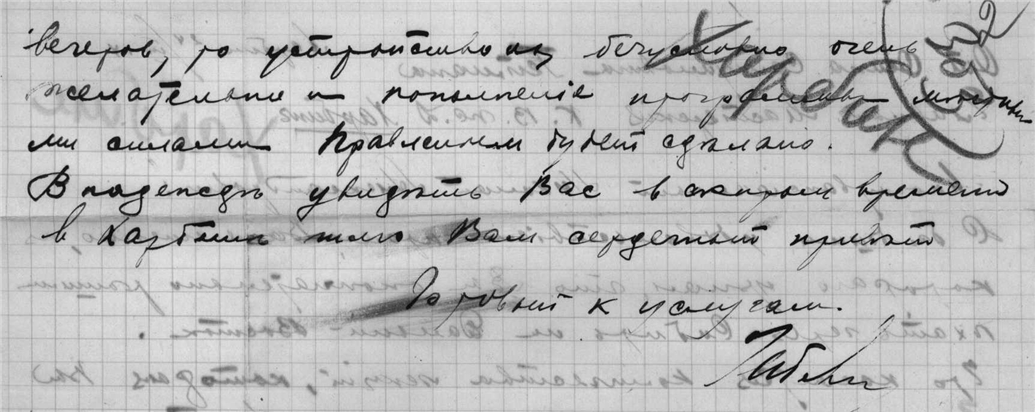 вечеров, то устройство их безусловно очень
желательно и пополненiе программы местны-
ми силами Правленiем будет сделано.
В надежде увидѣть Вас в скором времени
в Харбине шлю Вам сердечный привѣт
Готовый к услугам.
Харбин